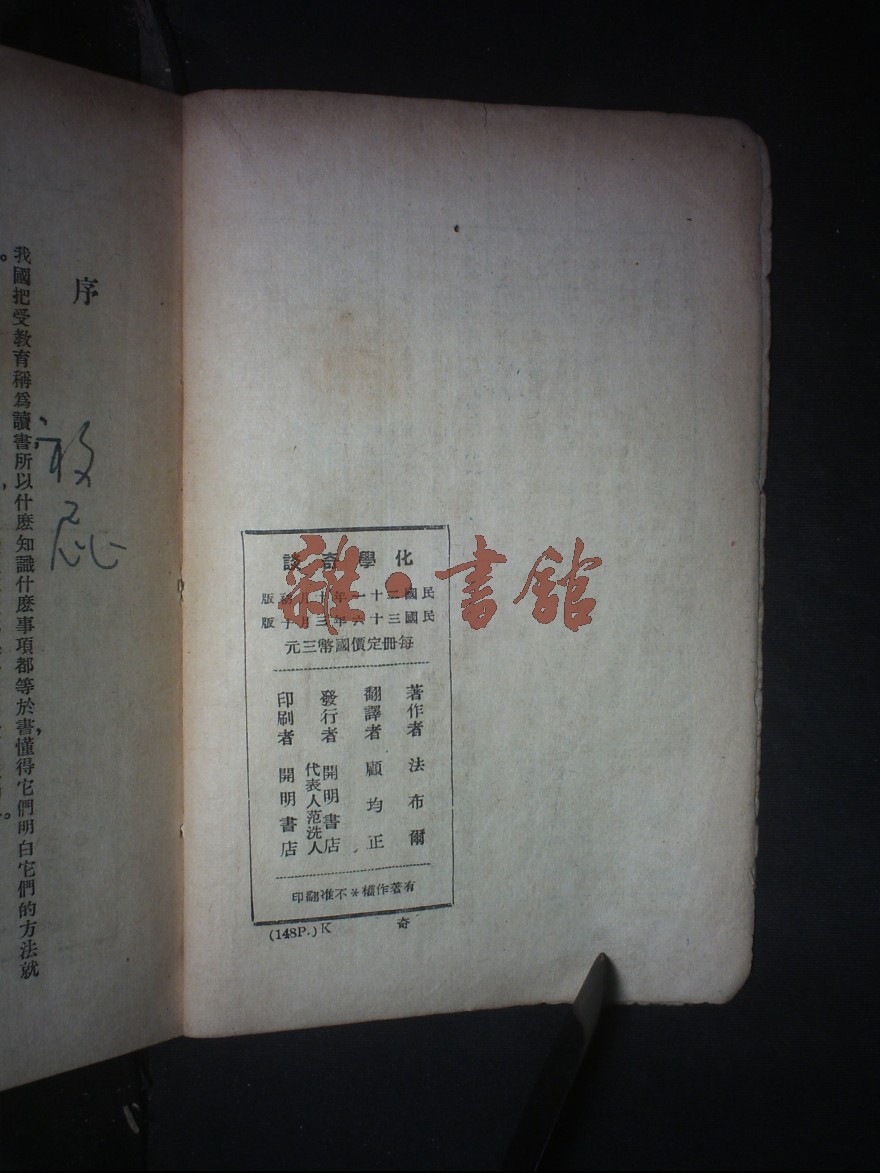 化學奇談
民國二十一年 月初版
民國三十六年三月十版
每冊定價國幣三元
著作者 法布爾
翻譯者 顧均正
發行者 開明書店
代表人范洗人
印刷者 開明書店
有著作權*不准翻印
(148P.)K 奇
雜·書館
序
我國把受教育稱爲讀書,所以什麽知識什麽事項都等於書,懂得它們明白它們的方法就